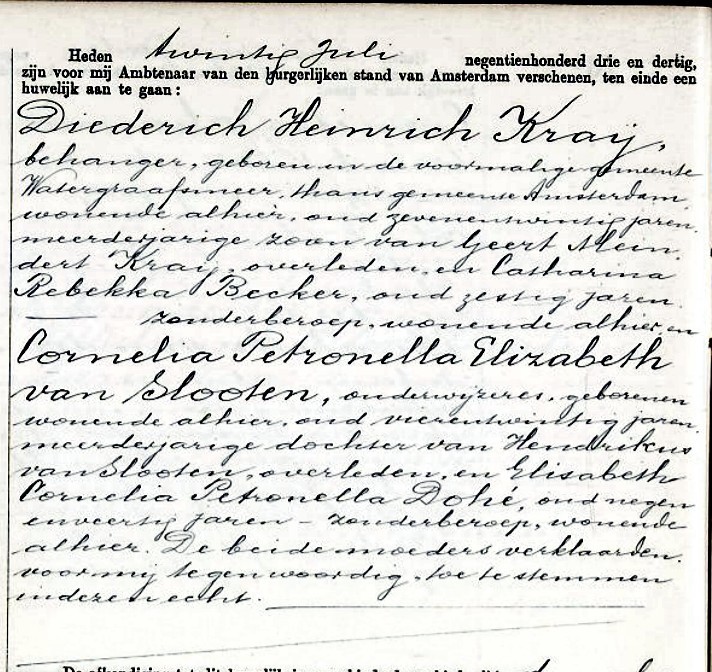 Heden twintig Juli negentienhonderd drie en dertig,
zijn voor mij Ambtenaar van den burgerlijken stand van Amsterdam verschenen, ten einde een
huwelijk aan te gaan:
Diederich Heinrich Kraij,
behanger, geboren in de voormalige gemeente
Watergraafsmeer, thans gemeente Amsterdam,
wonende alhier, oud zevenentwintig jaren,
meerderjarige zoon van Geert Mein
dert Kraij, overleden, en Catharina
Rebekka Becker, oud zestig jaren,
zonder beroep, wonende alhier, en
Cornelia Petronella Elizabeth
van Slooten, onderwijzeres, geboren en
wonende alhier, oud vierentwintig jaren,
meerderjarige dochter van Hendrikus
van Slooten, overleden, en Elisabeth
Cornelia Petronella Dohé, oud negen
enveertig jaren – zonder beroep, wonende
alhier. De beide moeders verklaarden
voor mij tegenwoordig, toe te stemmen
in deze n echt.